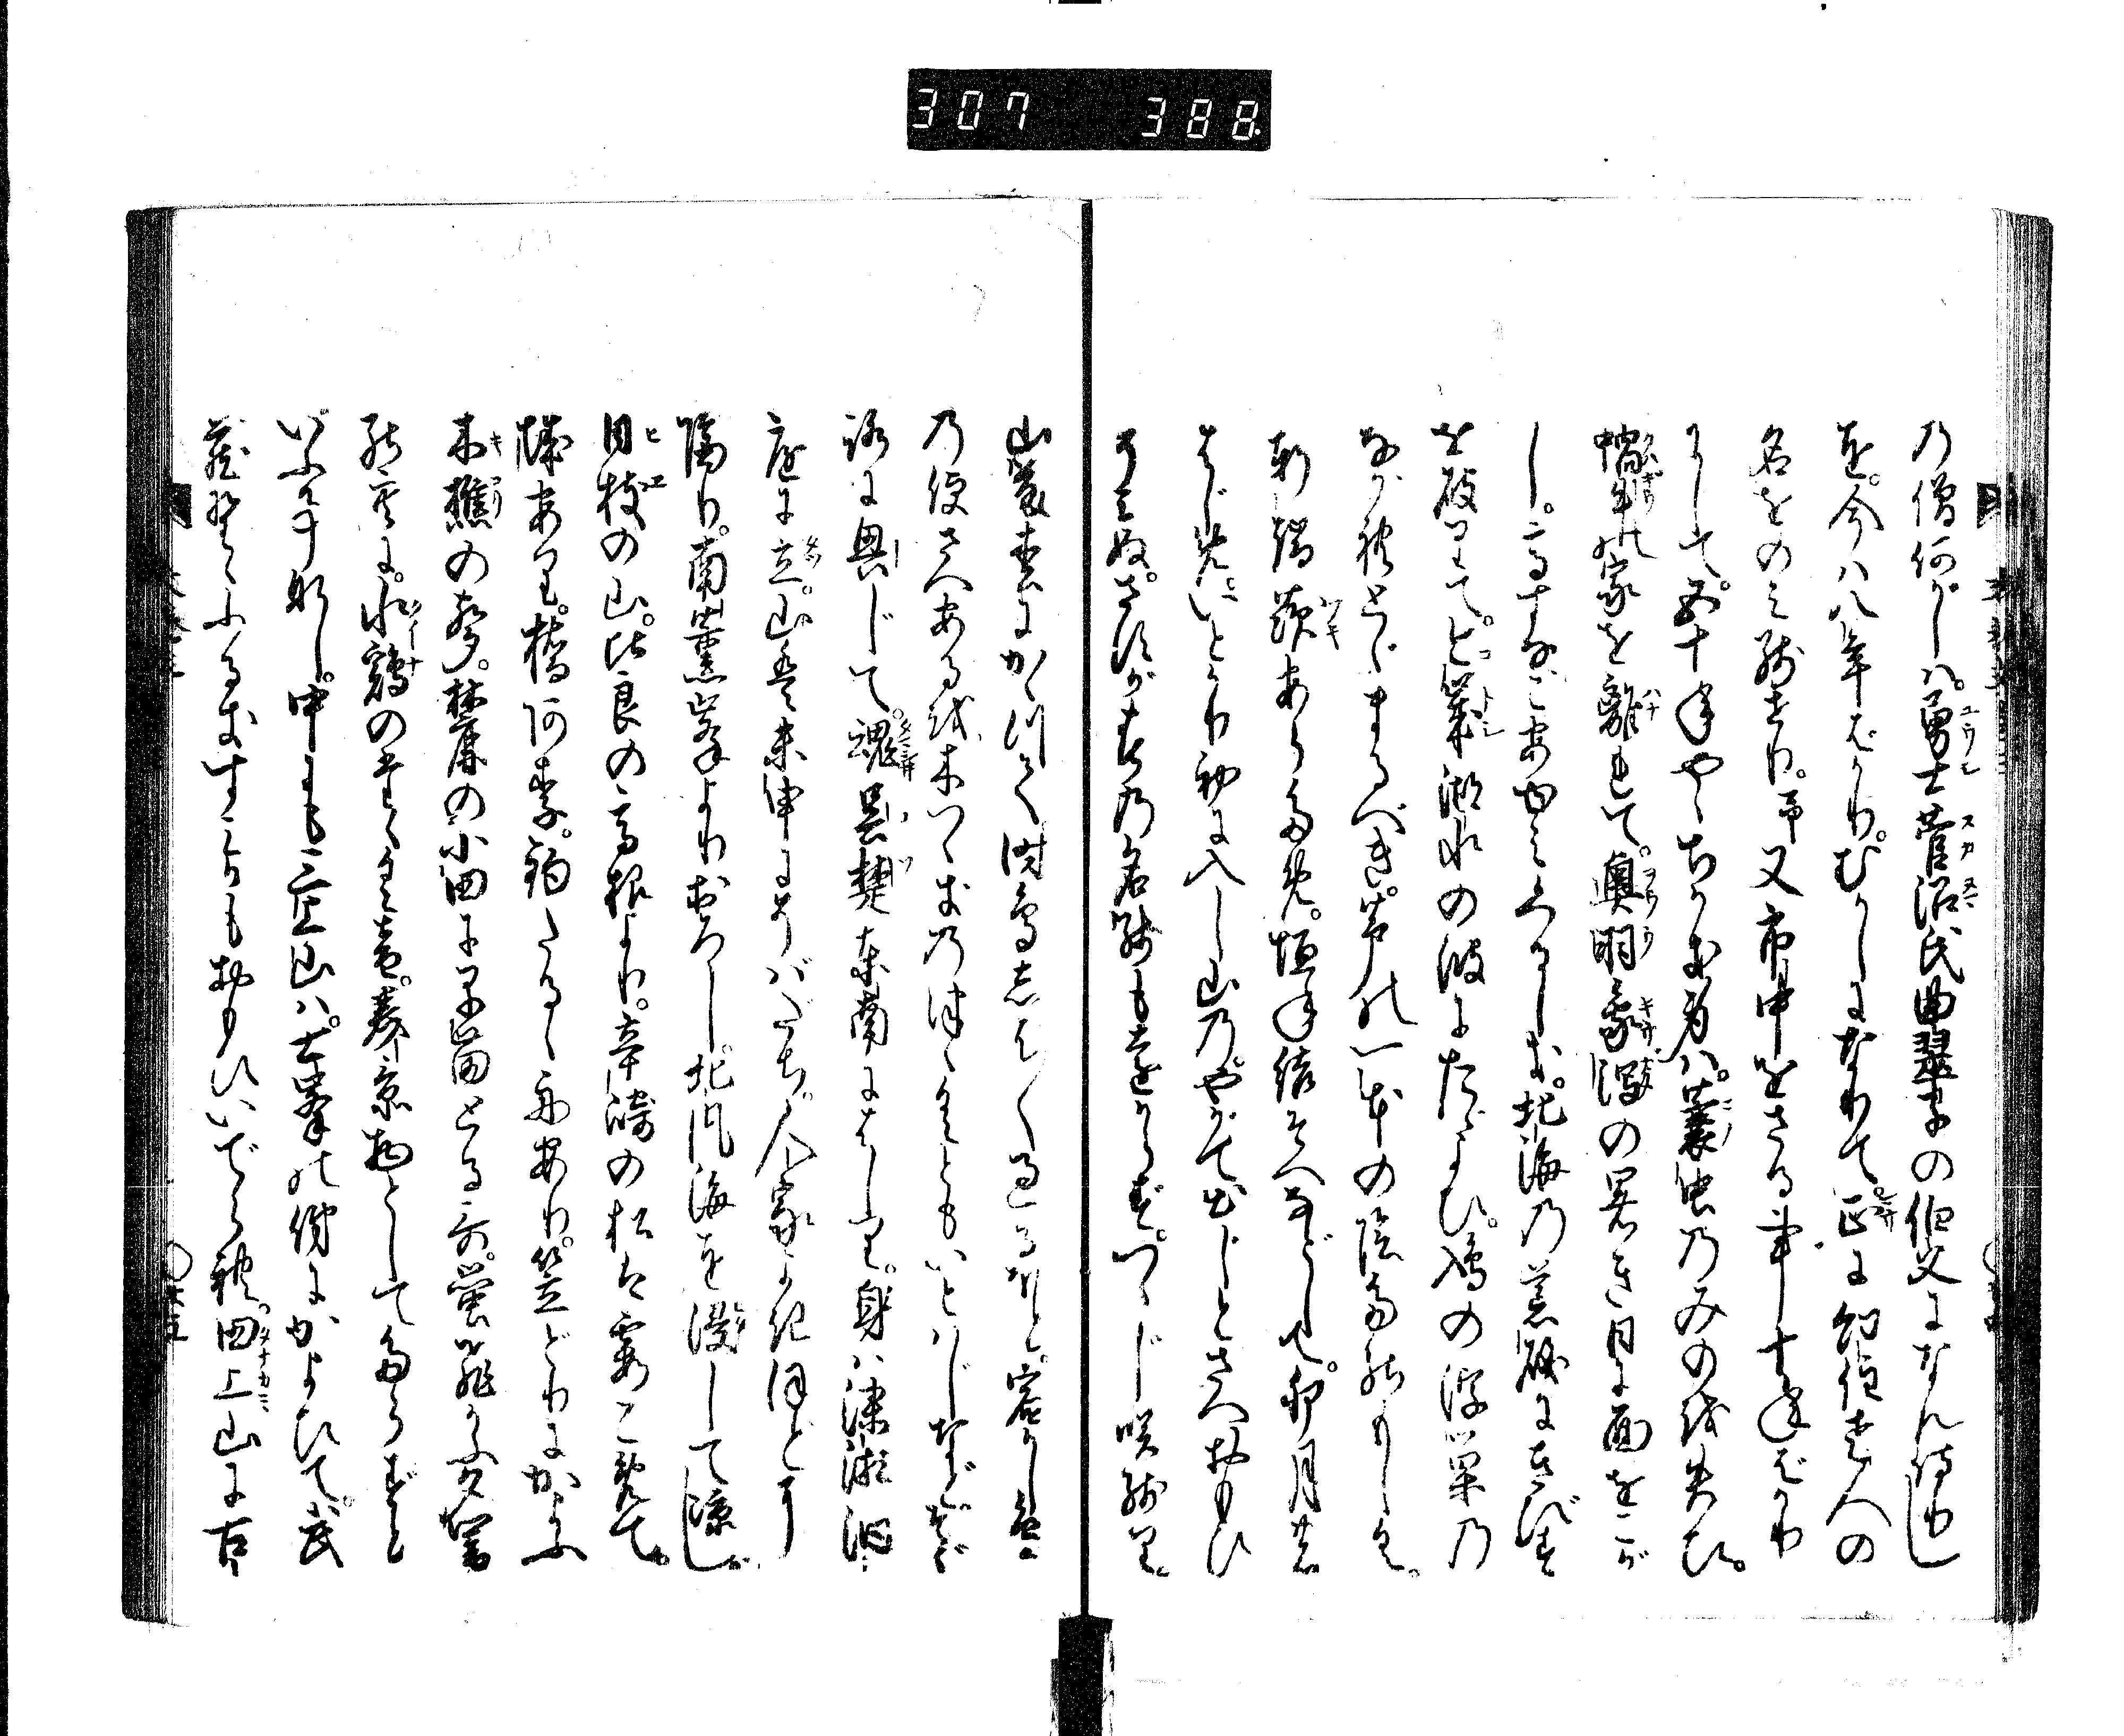 307 388
乃僧何がしハ。勇士菅沼氏曲翠子の伯父になん侍りし
を。今ハ八年ばかりむかしになりて。正に幻住老人の
名をのミ残せり。予又市中をさる事十年ばかり
にして。五十年やゝちかき身ハ。蓑虫乃みのを失ひ。
蝸牛の家を離れて。奥羽象潟の暑き日に面をこが
し。高すなごあゆミくるしき。北海乃荒磯にきびす
を破りて。ことし湖水の波にたゞよひ。鳰の浮巣乃
ながれとゞまるべき。芦の一本の陰たのもしく。
軒端茨あらため。垣ね結そへなどして。卯月の
はじめ。いとかり初に入し山乃。やがて出じとさへおもひ
そミぬ。さすが春乃名残も遠からず。つゝじ咲残り。
山藤松にかゝつて時鳥しば〳〵過るほど。宿かし鳥
乃便さへあるを木つゝきの津ゝくともいとハじなど。そゞ
ろに興じて。魂呉楚東南にはしり。身ハ瀟湘洞
庭に立。山ハ未申にそバだち。人家よきほどに
隔り。南薫峯よりおろし。北風海を浸して涼し。
日枝の山。比良の高根より。辛崎の松は霞こめて。
城あり。橋阿り。釣たるゝ舟あり。笠とりにかよふ
木樵の声。麓の小田に早苗とる哥。蛍飛かふ夕闇
の空に。水鶏のたゝく音。美景物としてたらずと
いふ事なし。中にも三上山ハ。士峯の俤にかよひて。武
蔵野ゝふるきすミかもおもひいでられ。田上山に古